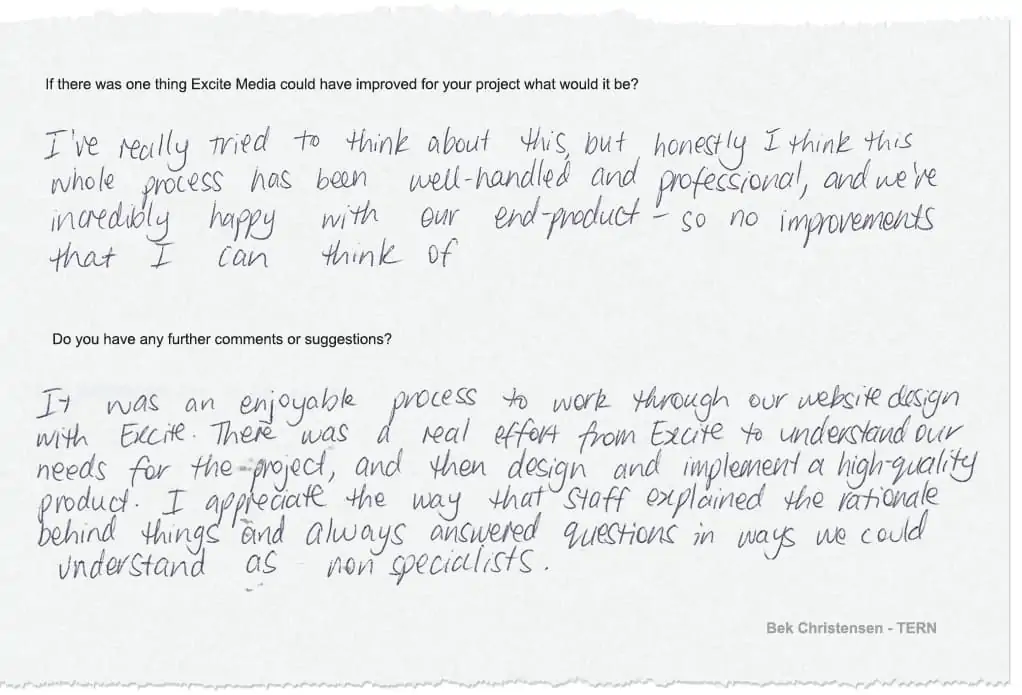 If there was one thing Excite Media could have improved for your project what would it be?
I've really tried to think about this, but honestly I think this
whole process has been well-handled and professional, and we're
incredibly happy with our end-product - so no improvements
that I can think of
Do you have any further comments or suggestions?
It was an enjoyable process to work through our website design
with Excite. There was a real effort from Excite to understand our
needs for the project, and then design and implement a high-quality
product. I appreciate the way that staff explained the rationale
behind things and always answered questions in ways we could
understand as non specialists.
Bek Christensen - TERN